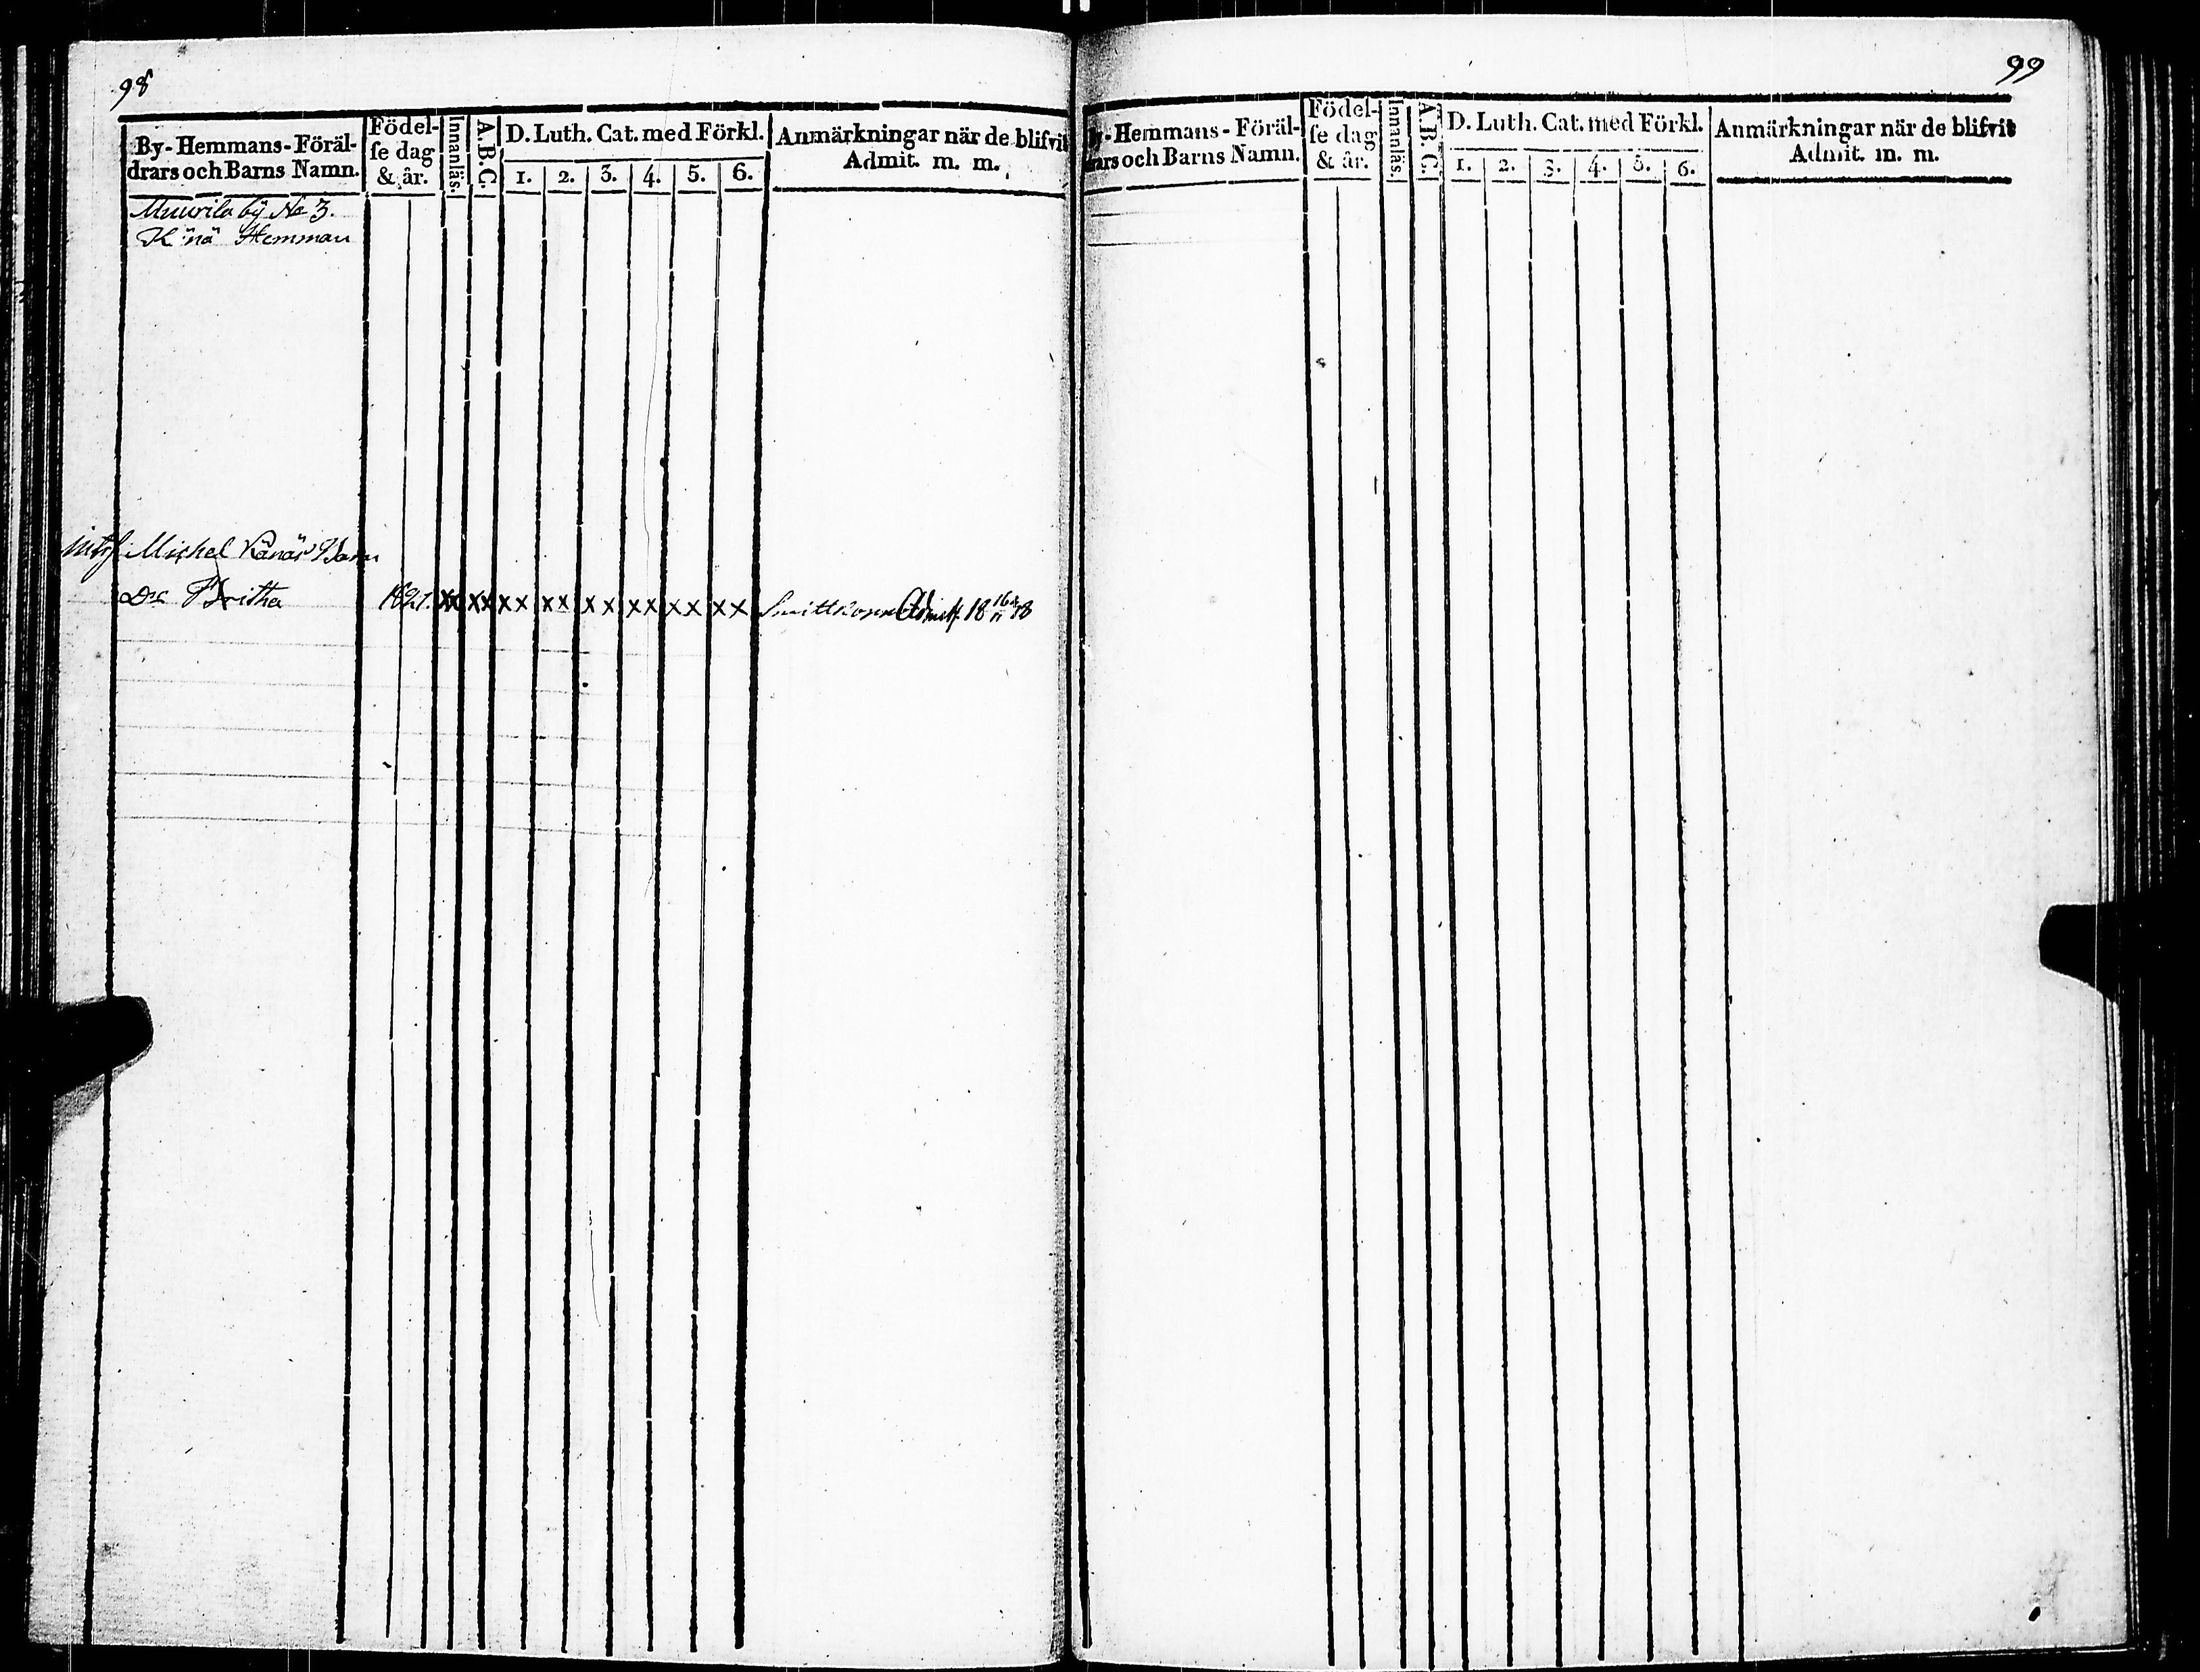 98
By- Hemmans- Föräl-
drars och Barns Namn.
Födel-
se dag
& år.
Innanläs.
A.B.C.
D. Luth. Cat. med Förkl.
1. 2. 3. 4. 5. 6.
Anmärkningar när de blifvit
Admit. m. m.
Muurila by No 3.
K nä Hemman
Michel Känäs Barn
Dr Britha 1821. xx xx xx xx xx xx xx xx Admitt. 18 38
99
By- Hemmans- Föräl-
drars och Barns Namn.
Födel-
se dag
& år.
Innanläs.
A.B.C.
D. Luth. Cat. med Förkl.
1. 2. 3. 4. 5. 6.
Anmärkningar när de blifvit
Admit. m. m.